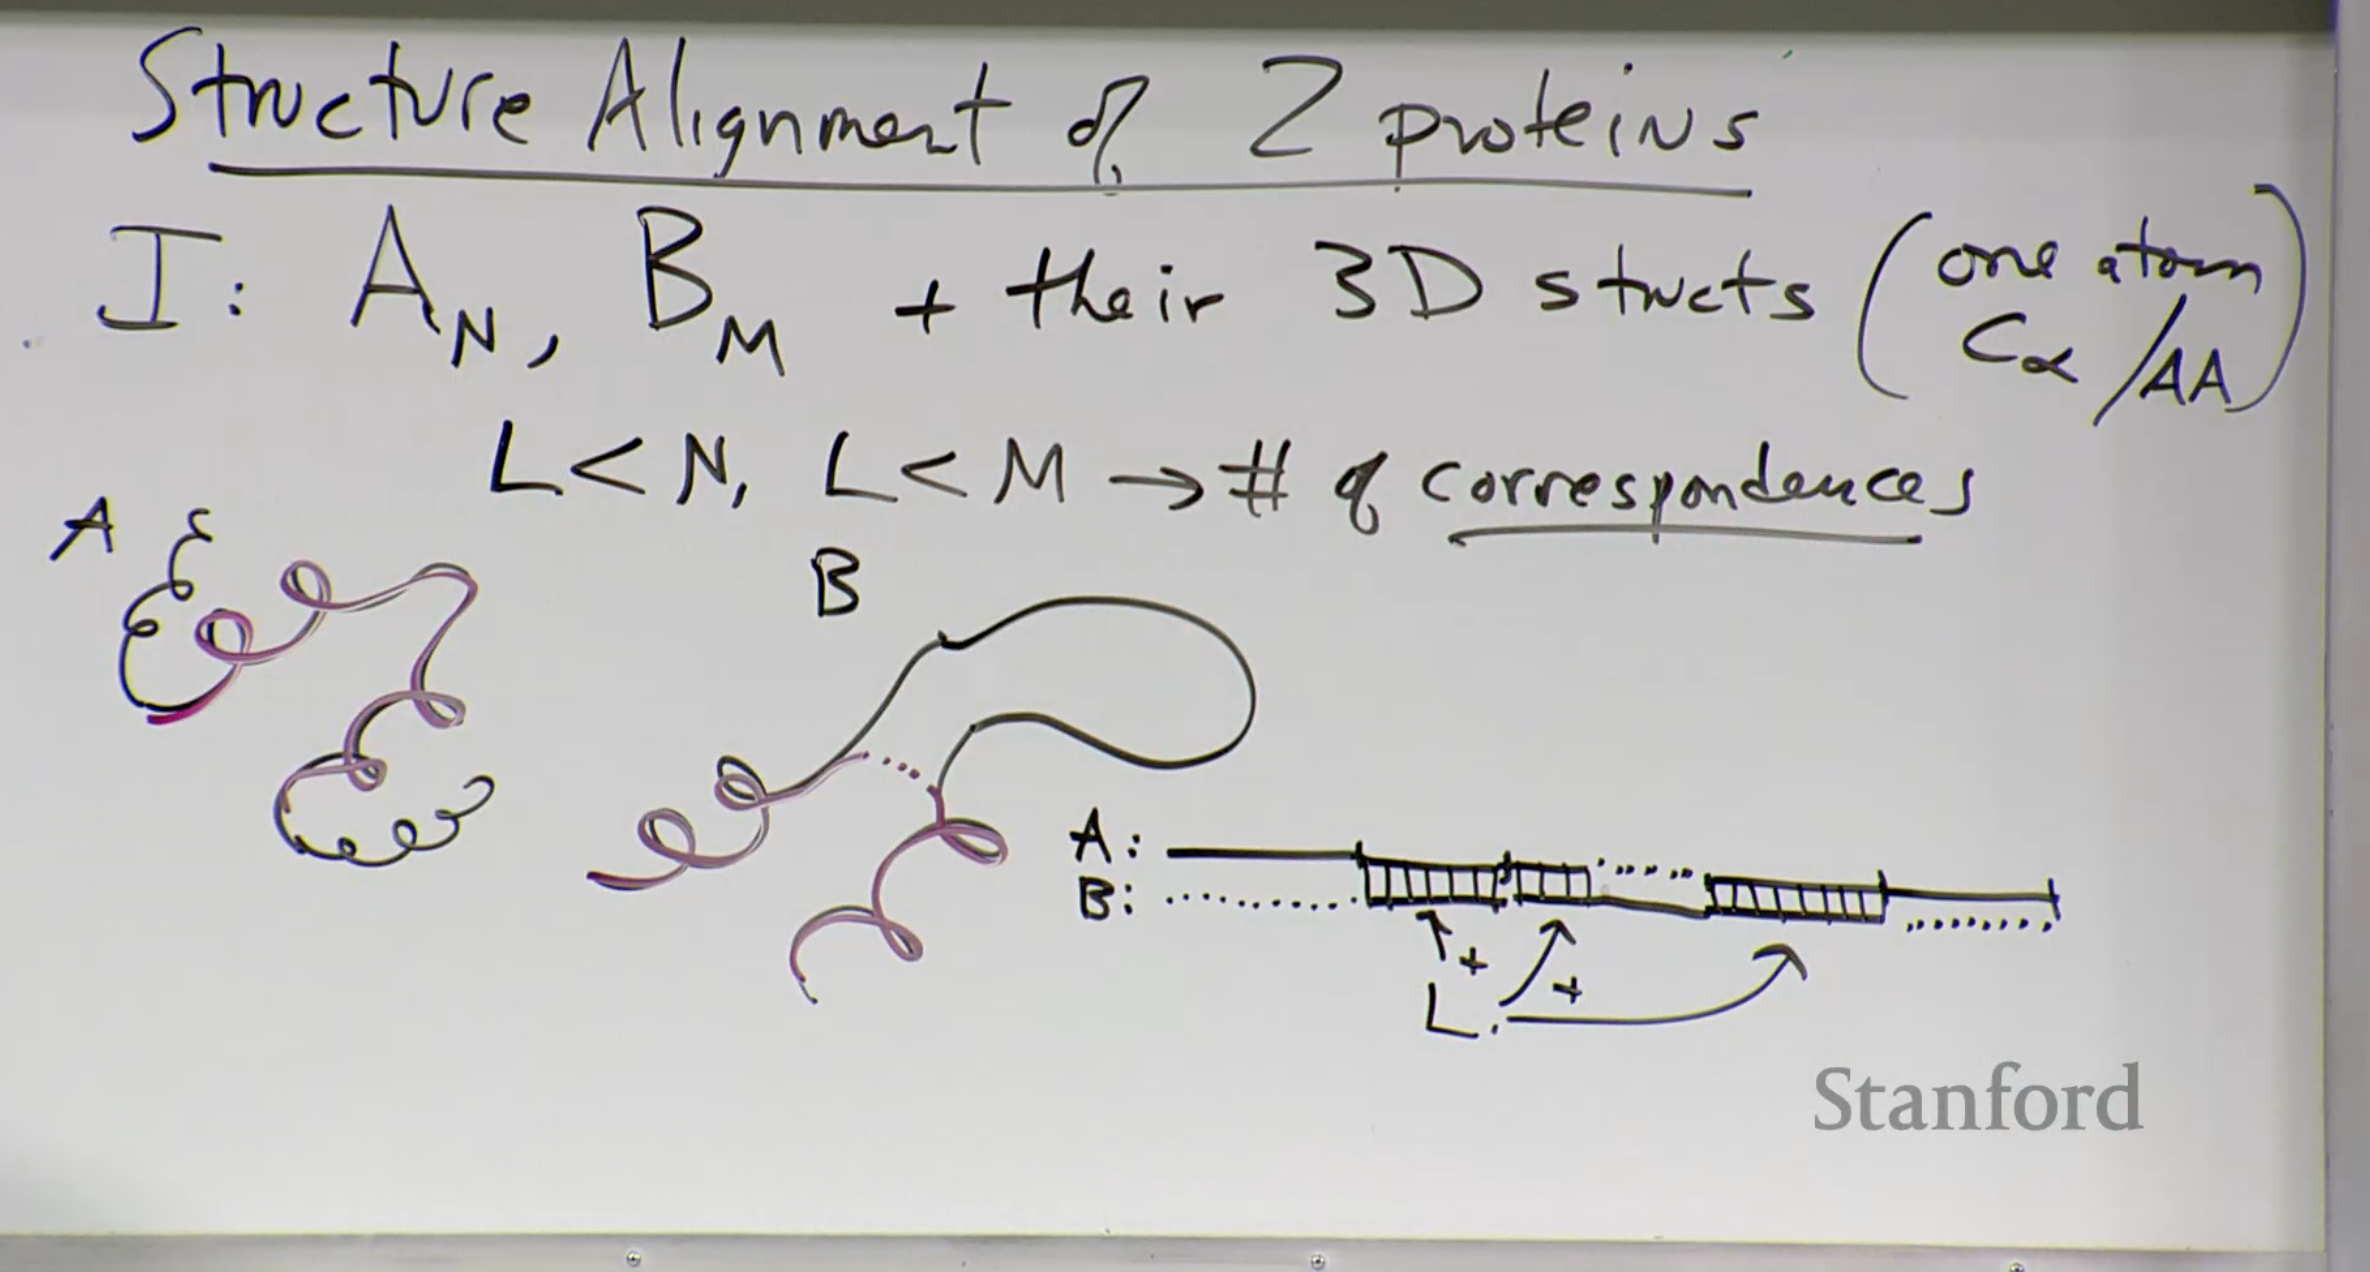 Structure Alignment of 2 proteins
I: A_N, B_M + their 3D structs (one atom Cα/AA)
L < N, L < M → # of correspondences
A
B
A:
B:
+
+
L.
Stanford